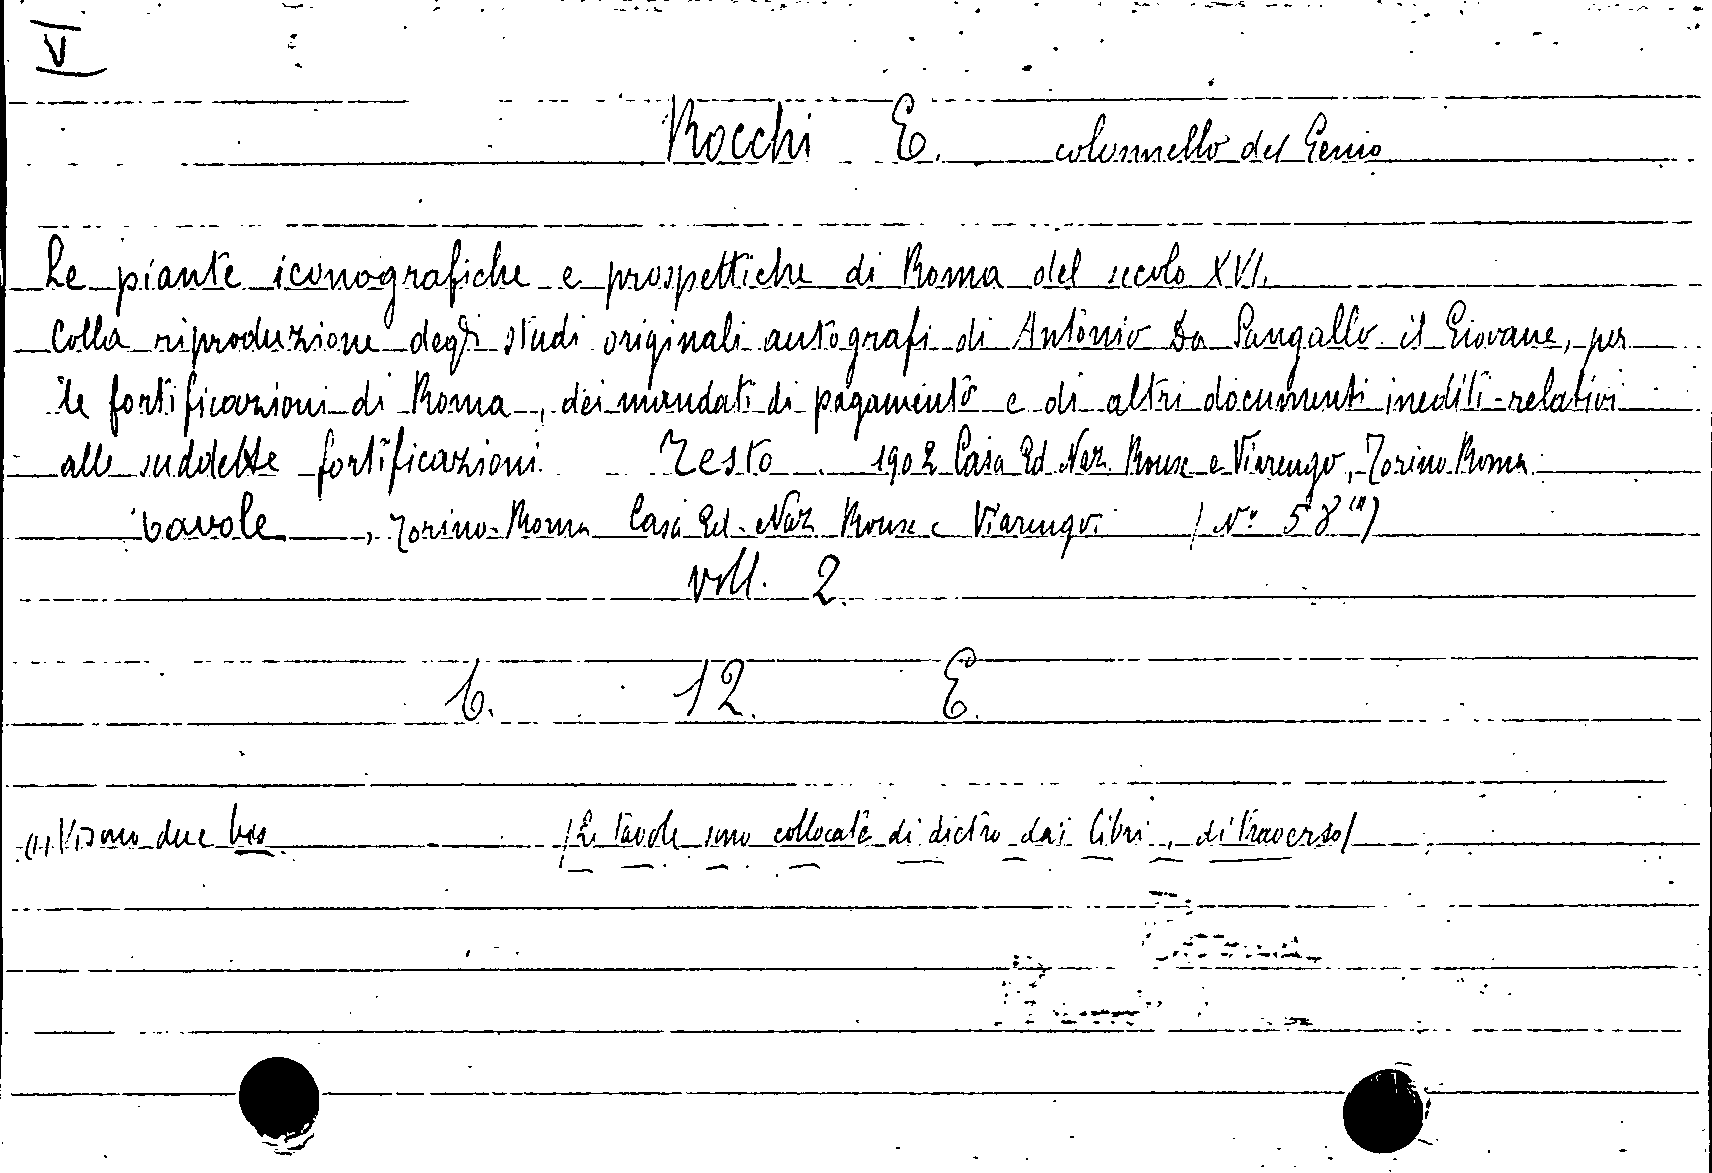 V
Rocchi E. colonnello del Genio
Le piante iconografiche e prospettiche di Roma del secolo XVI.
Colla riproduzione degli studi originali autografi di Antonio Da Sangallo il Giovane, per
le fortificazioni di Roma, dei mandati di pagamento e di altri documenti inediti relativi
alle suddette fortificazioni. Testo 1902 Casa Ed Naz. Roux e Viarengo, Torino Roma
tavole, Torino-Roma Casa Ed. Naz Roux e Viarengo. (N° 58 (1))
voll. 2.
6. 12. E.
(1) Vi sono due bis (Le tavole sono collocate di dietro dai libri, di traverso)